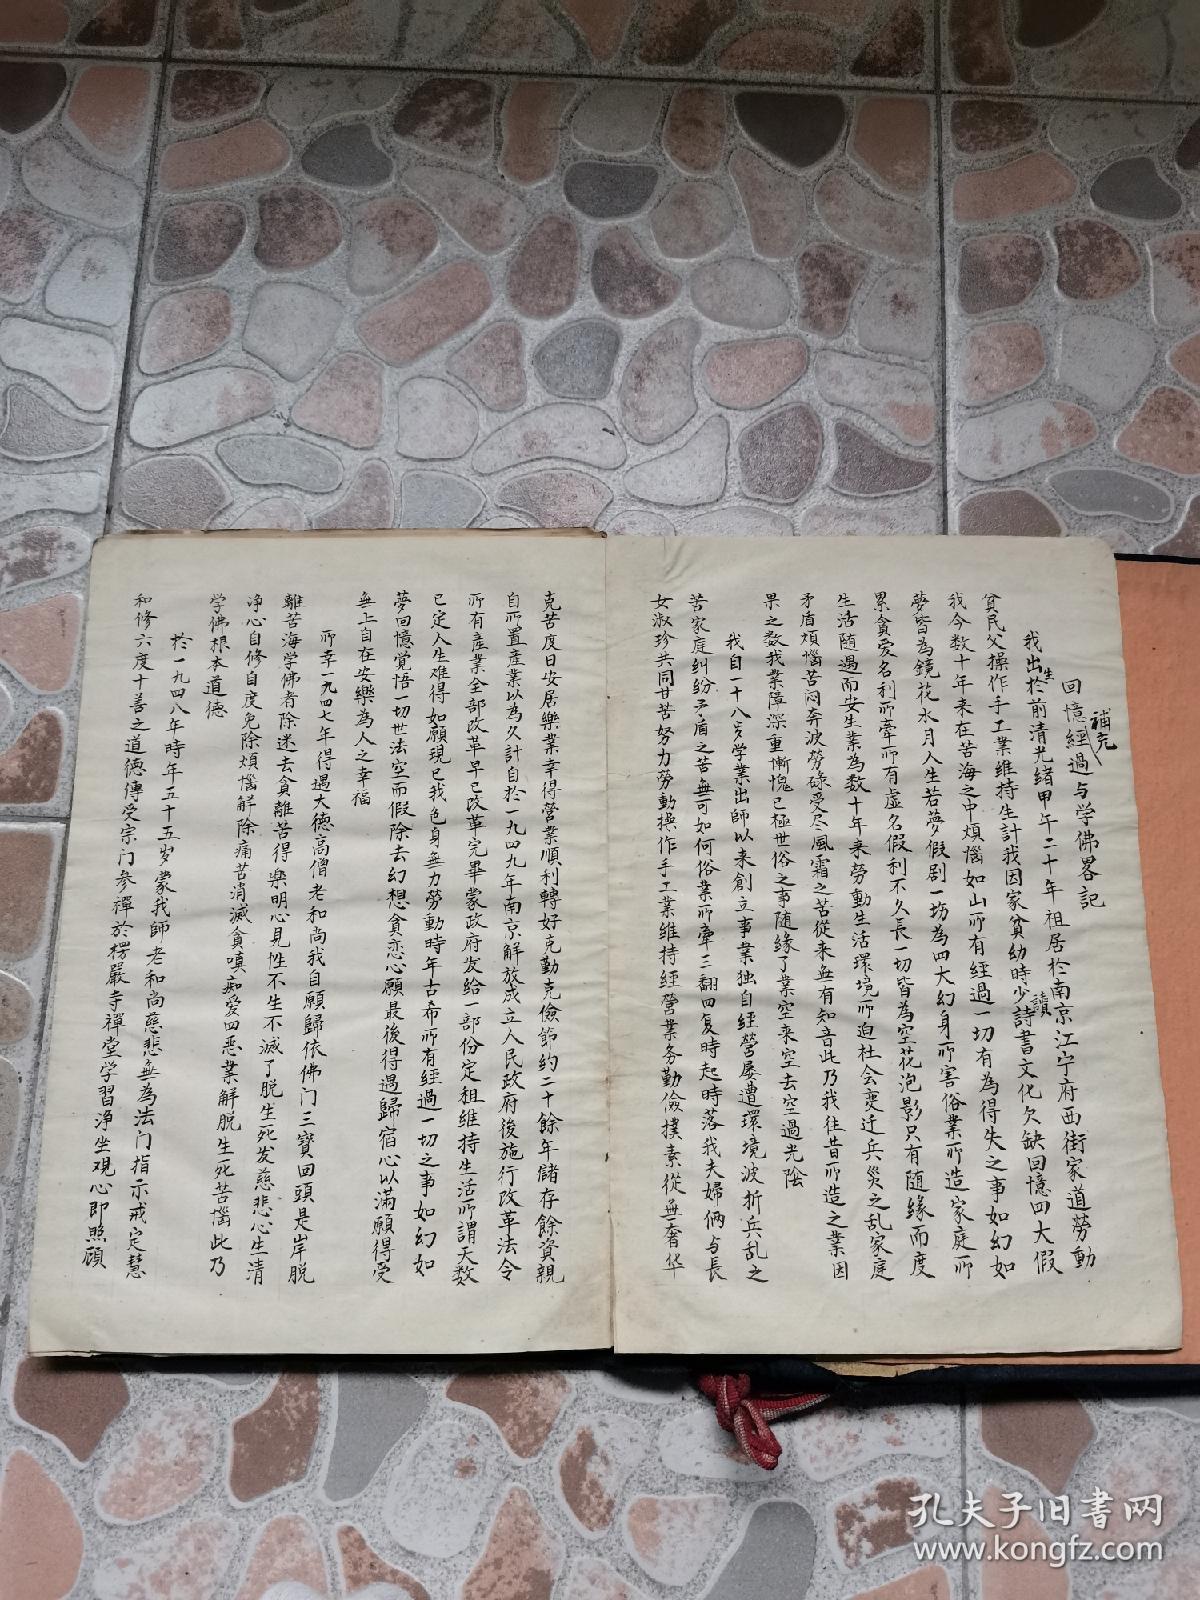 補充
回憶經過与学佛畧記
我出生於前清光緒甲午二十年祖居於南京江宁府西街家道勞動
貧民父操作手工業維持生計我因家貧幼時少讀詩書文化欠缺回憶四大假
我今数十年来在苦海之中煩惱如山所有經過一切有為得失之事如幻如
夢皆為鏡花水月人生若夢假剧一塲為四大幻身所害俗業所造家庭所
累貪爱名利所牽所有虛名假利不久長一切皆為空花泡影只有随缘而度
生活随遇而安生業為数十年来勞動生活環境所迫社会变迁兵災之乱家庭
矛盾煩惱苦闷奔波勞碌受尽風霜之苦從来無有知音此乃我往昔所造之業因
果之数我業障深重慚愧已極世俗之事随缘了業空来空去空過光陰
我自一十八岁学業出師以来創立事業独自經營屡遭環境波折兵乱之
苦家庭纠纷矛盾之苦無可如何俗業所牽三翻四复時起時落我夫婦俩与長
女淑珍共同甘苦努力勞動操作手工業維持經營業务勤儉撲素從無奢华
克苦度日安居樂業幸得营業順利轉好克勤克儉節約二十餘年儲存餘資親
自所置產業以為久計自於一九四九年南京解放成立人民政府後施行改革法令
所有產業全部改革早已改革完畢蒙政府发给一部份定租維持生活所謂天数
已定人生难得如願現已我色身無力勞動時年古希所有經過一切之事如幻如
夢回憶覚悟一切世法空而假除去幻想貪恋心願最後得遇歸宿心以滿願得受
無上自在安樂為人之幸福
所幸一九四七年得遇大德高僧老和尚我自願歸依佛门三寳回頭是岸脱
離苦海学佛者除迷去貪離苦得樂明心見性不生不滅了脱生死发慈悲心生清
净心自修自度免除煩惱解除痛苦消滅貪嗔痴爱四恶業解脱生死苦惱此乃
学佛根本道德
於一九四八年時年五十五岁蒙我師老和尚慈悲無為法门指示戒定慧
和修六度十善之道德傳受宗门参禪於楞嚴寺禪堂学習净坐观心即照顾
孔夫子旧书网
www.kongfz.com